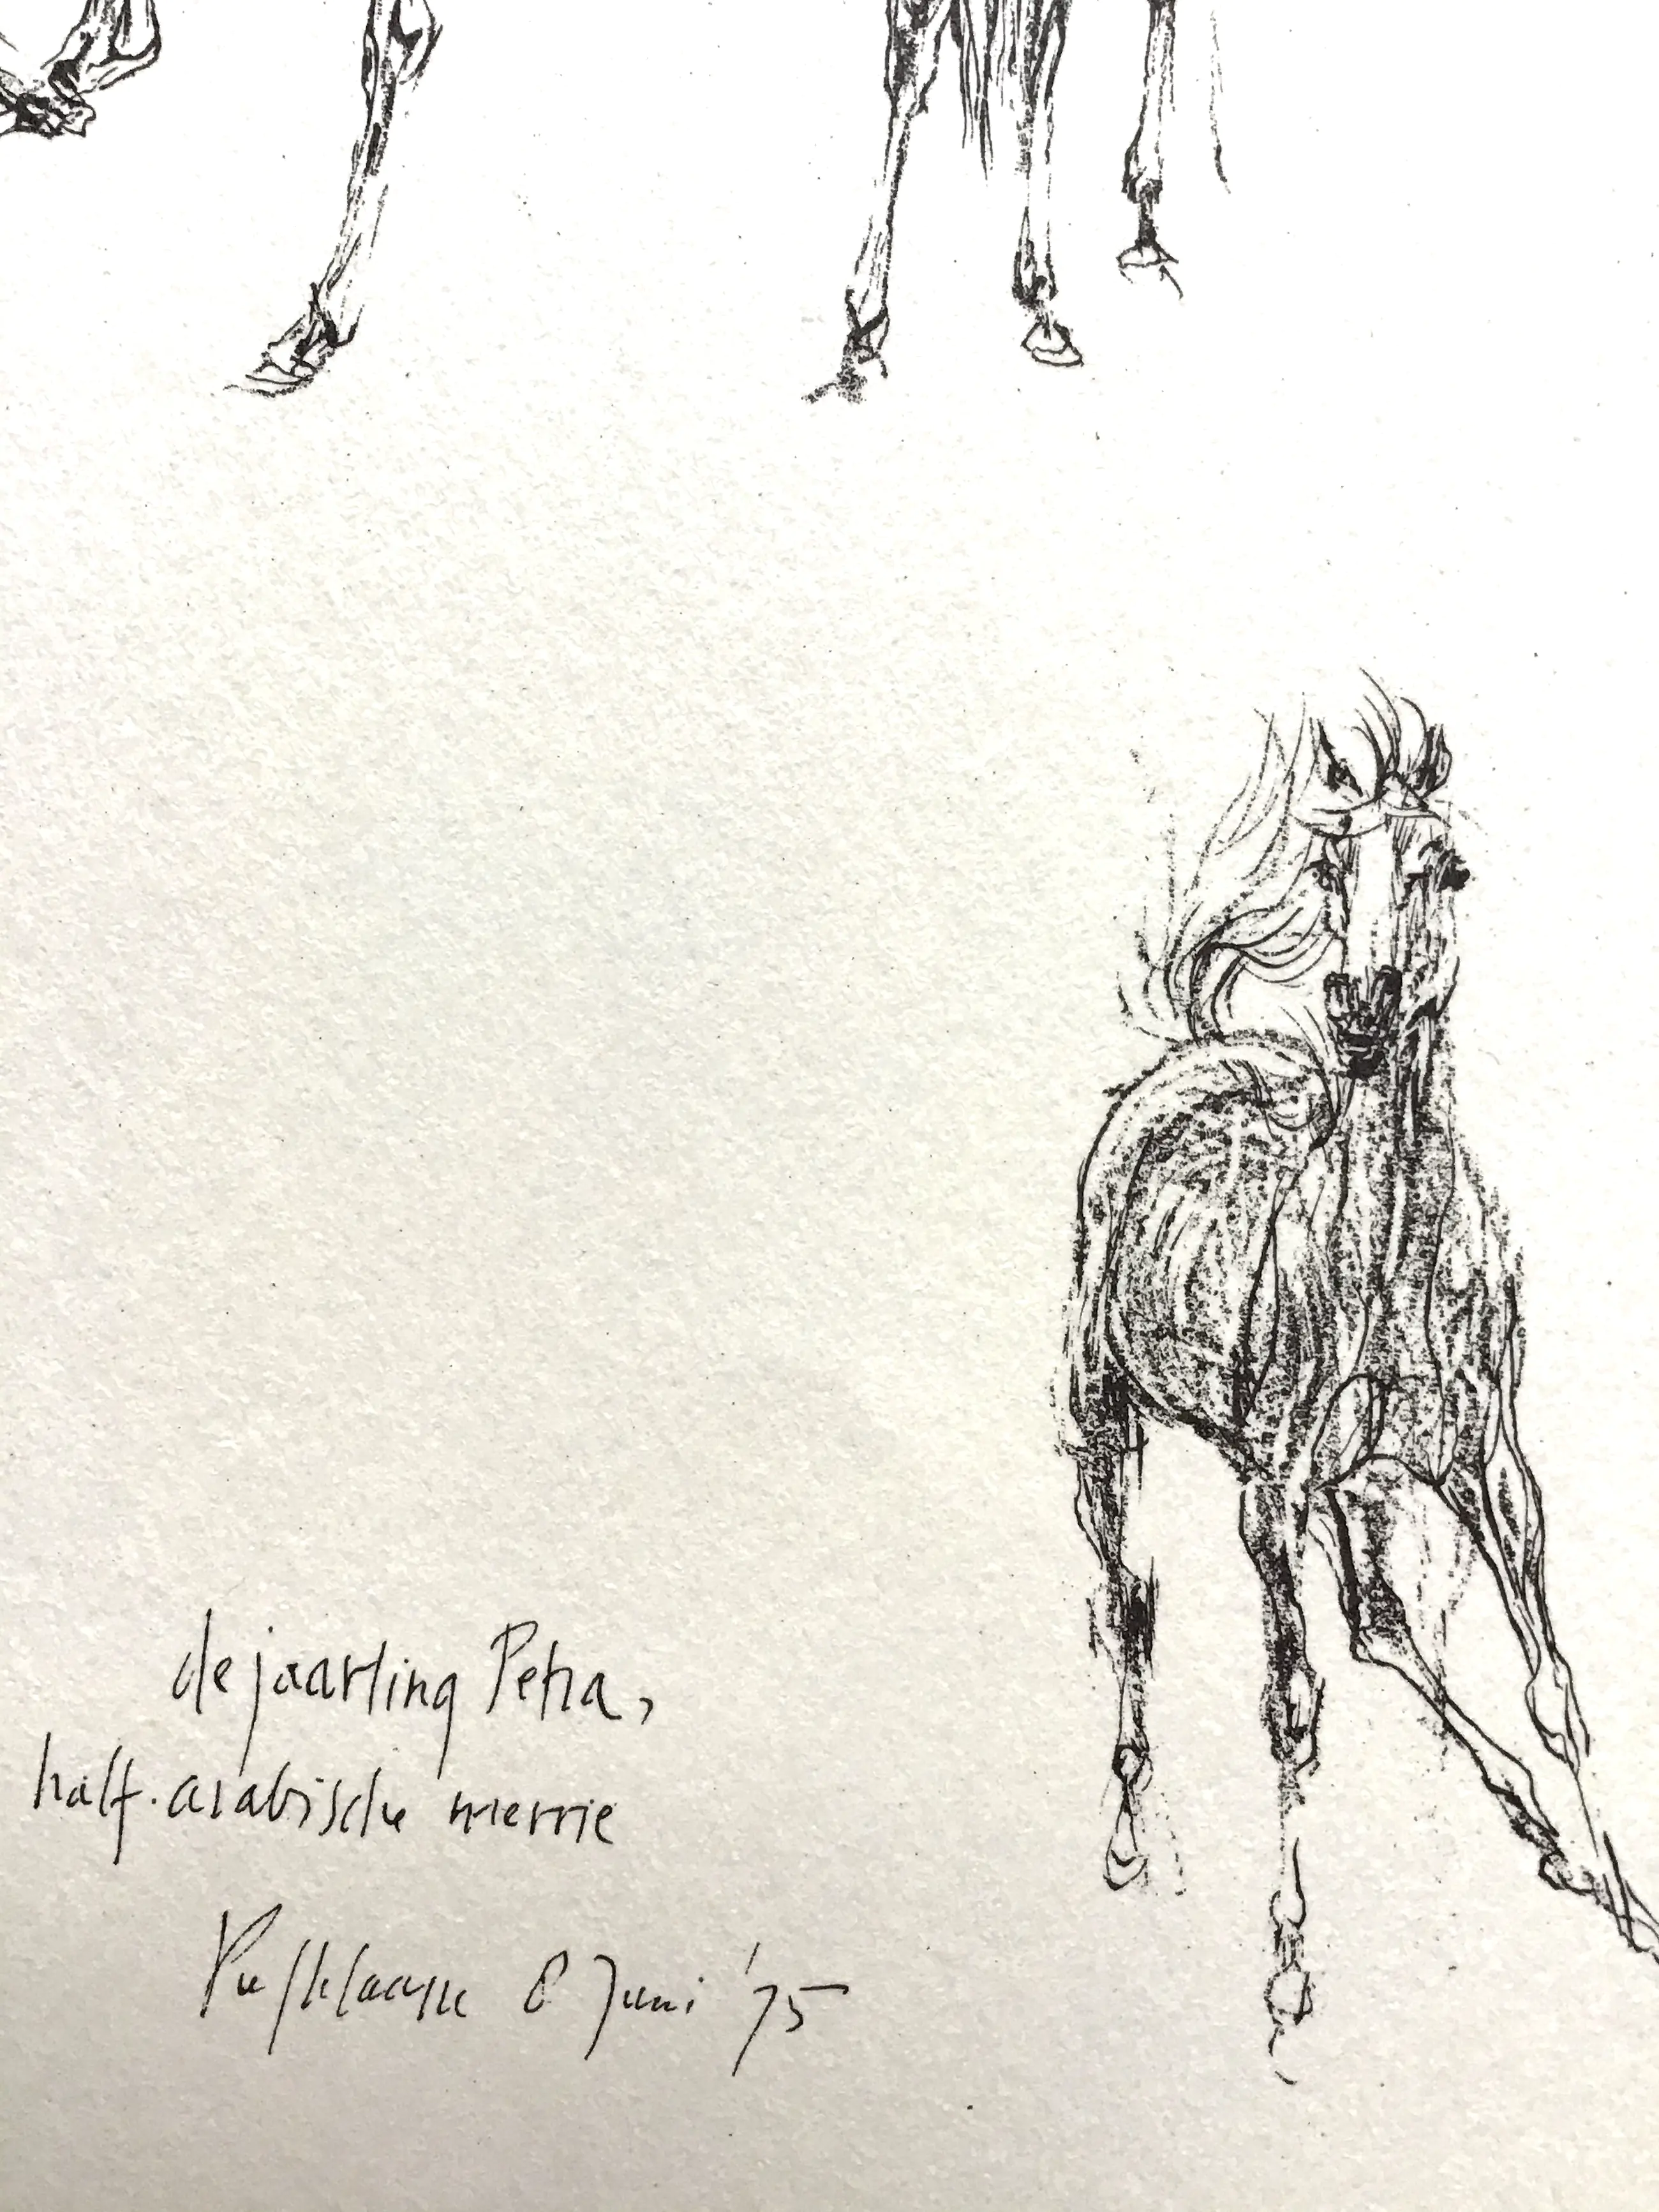 de jaarling Petra,
half-arabische merrie
8 Juni '75